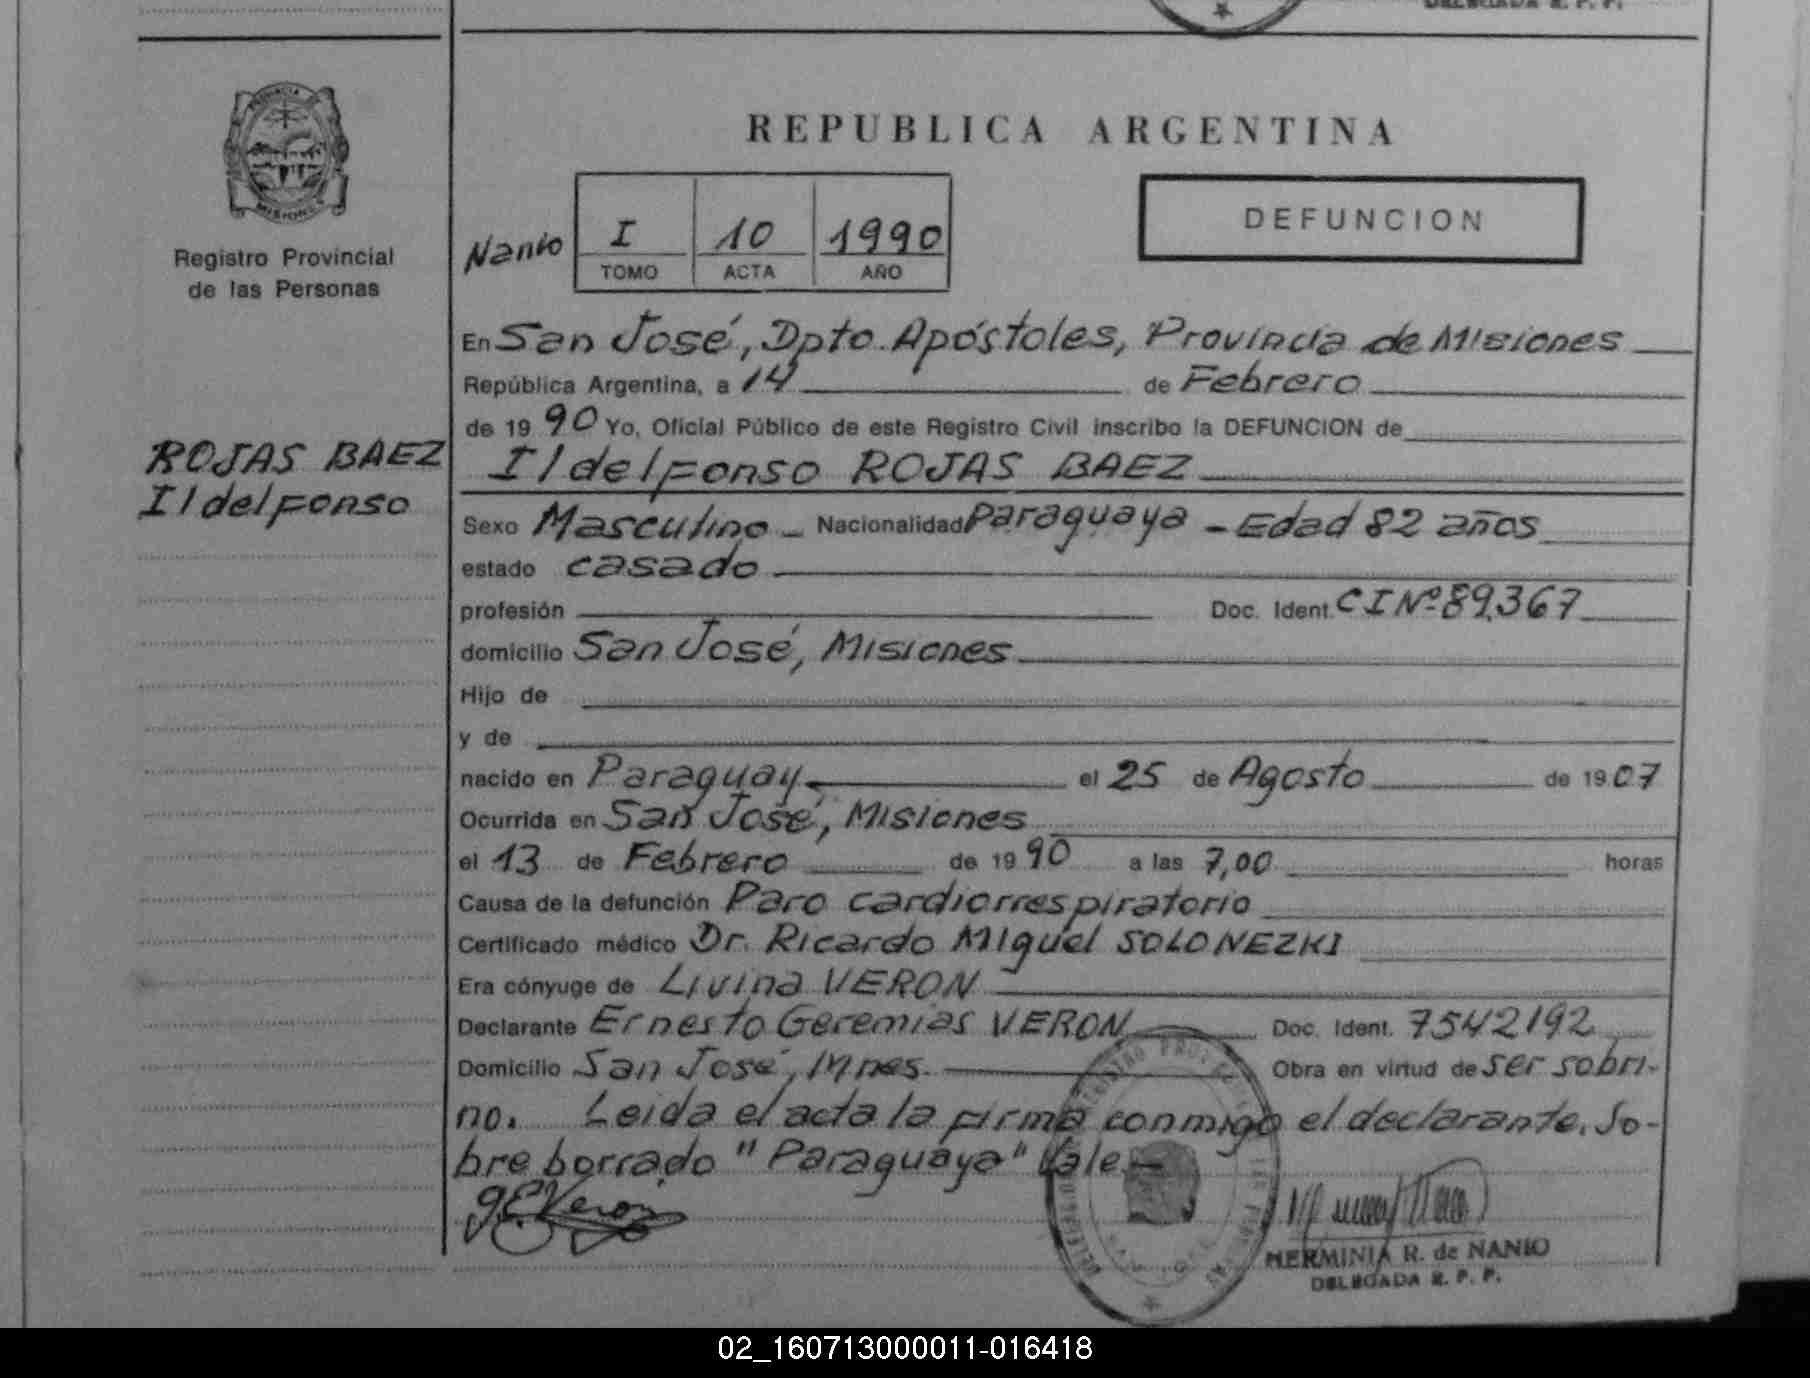 DELEGADA R. P. P.
PROVINCIA
MISIONES
Registro Provincial
de las Personas
ROJAS BAEZ
Ildelfonso
REPUBLICA ARGENTINA
Nanio
I 10 1990
TOMO ACTA AÑO
DEFUNCION
En San José, Dpto. Apóstoles, Provincia de Misiones
República Argentina, a 14 de Febrero
de 1990 Yo, Oficial Público de este Registro Civil inscribo la DEFUNCION de
Ildelfonso ROJAS BAEZ
Sexo Masculino - Nacionalidad Paraguaya - Edad 82 años
estado casado
profesión Doc. Ident. CI Nº 89.367
domicilio San José, Misiones
Hijo de
y de
nacido en Paraguay el 25 de Agosto de 1907
Ocurrida en San José, Misiones
el 13 de Febrero de 1990 a las 7,00 horas
Causa de la defunción Paro cardiorrespiratorio
Certificado médico Dr. Ricardo Miguel SOLONEZKI
Era cónyuge de Livina VERON
Declarante Ernesto Geremias VERON Doc. Ident. 7542192
Domicilio San José, Mnes. Obra en virtud de ser sobri-
no. Leida el acta la firma conmigo el declarante. So-
bre borrado "Paraguaya" Vale.-
G.E. Veron
HERMINIA R. de NANIO
DELEGADA R. P. P.
02_160713000011-016418